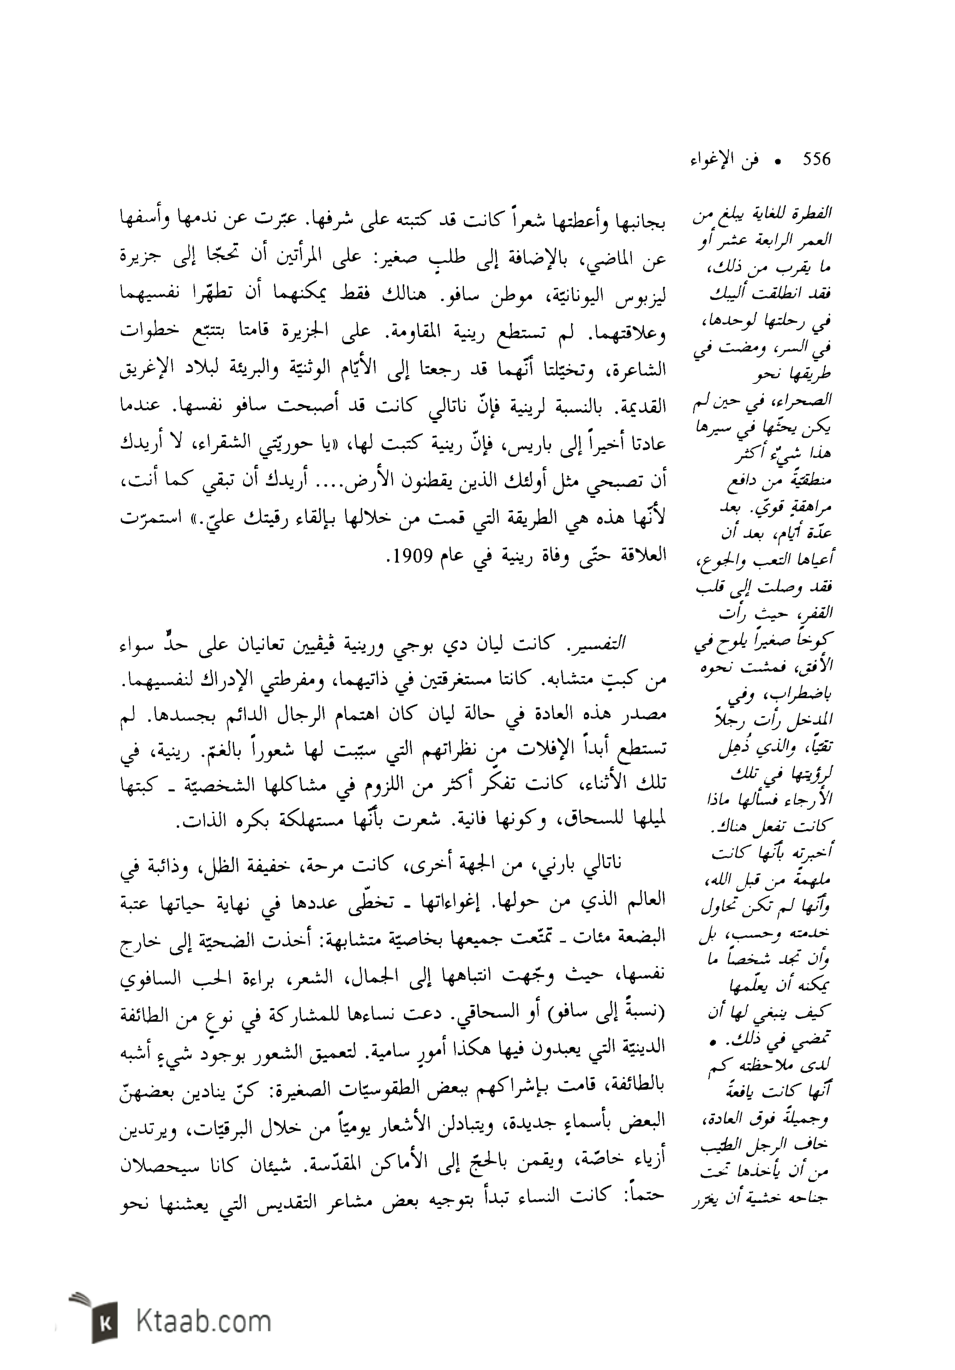 556 • فن الإغواء
بجانبها وأعطتها شعراً كانت قد كتبته على شرفها. عبّرت عن ندمها وأسفها
عن الماضي، بالإضافة إلى طلبٍ صغير: على المرأتين أن تحجّا إلى جزيرة
ليزبوس اليونانيّة، موطن سافو. هنالك فقط يمكنهما أن تطهّرا نفسيهما
وعلاقتهما. لم تستطع رينية المقاومة. على الجزيرة قامتا بتتبّع خطوات
الشاعرة، وتخيّلتا أنّهما قد رجعتا إلى الأيّام الوثنيّة والبريئة لبلاد الإغريق
القديمة. بالنسبة لرينية فإنّ ناتالي كانت قد أصبحت سافو نفسها. عندما
عادتا أخيراً إلى باريس، فإنّ رينية كتبت لها، «يا حوريّتي الشقراء، لا أريدك
أن تصبحي مثل أولئك الذين يقطنون الأرض.... أريدك أن تبقي كما أنت،
لأنّها هذه هي الطريقة التي قمت من خلالها بإلقاء رقيتك عليّ.» استمرّت
العلاقة حتّى وفاة رينية في عام 1909.
التفسير. كانت ليان دي بوجي ورينية ڤيڤيين تعانيان على حدٍّ سواء
من كبتٍ متشابه. كانتا مستغرقتين في ذاتيهما، ومفرطتي الإدراك لنفسيهما.
مصدر هذه العادة في حالة ليان كان اهتمام الرجال الدائم بجسدها. لم
تستطع أبداً الإفلات من نظراتهم التي سبّبت لها شعوراً بالغمّ. رينية، في
تلك الأثناء، كانت تفكّر أكثر من اللزوم في مشاكلها الشخصيّة ـ كبتها
لميلها للسحاق، وكونها فانية. شعرت بأنّها مستهلكة بكره الذات.
ناتالي بارني، من الجهة أخرى، كانت مرحة، خفيفة الظل، وذائبة في
العالم الذي من حولها. إغواءاتها ـ تخطّى عددها في نهاية حياتها عتبة
البضعة مئات ـ تمتّعت جميعها بخاصيّة متشابهة: أخذت الضحيّة إلى خارج
نفسها، حيث وجّهت انتباهها إلى الجمال، الشعر، براءة الحب السافوي
(نسبةً إلى سافو) أو السحاقي. دعت نساءها للمشاركة في نوعٍ من الطائفة
الدينيّة التي يعبدون فيها هكذا أمورٍ سامية. لتعميق الشعور بوجود شيءٍ أشبه
بالطائفة، قامت بإشراكهم ببعض الطقوسيّات الصغيرة: كنّ ينادين بعضهنّ
البعض بأسماءٍ جديدة، ويتبادلن الأشعار يوميّاً من خلال البرقيّات، ويرتدين
أزياء خاصّة، ويقمن بالحجّ إلى الأماكن المقدّسة. شيئان كانا سيحصلان
حتماً: كانت النساء تبدأ بتوجيه بعض مشاعر التقديس التي يعشنها نحو
الفطرة للغاية يبلغ من
العمر الرابعة عشر أو
ما يقرب من ذلك،
فقد انطلقت أليبك
في رحلتها لوحدها،
في السر، ومضت في
طريقها نحو
الصحراء، في حين لم
يكن يحثّها في سيرها
هذا شيءٌ أكثر
منطقيّةً من دافع
مراهقةٍ قويّ. بعد
عدّة أيّام، بعد أن
أعياها التعب والجوع،
فقد وصلت إلى قلب
القفر، حيث رأت
كوخاً صغيراً يلوح في
الأفق، فمشت نحوه
باضطراب، وفي
المدخل رأت رجلاً
تقيّاً، والذي ذُهِل
لرؤيتها في تلك
الأرجاء فسألها ماذا
كانت تفعل هناك.
أخبرته بأنّها كانت
ملهمةً من قبل الله،
وأنّها لم تكن تحاول
خدمته وحسب، بل
وأن تجد شخصاً ما
يمكنه أن يعلّمها
كيف ينبغي لها أن
تمضي في ذلك. •
لدى ملاحظته كم
أنّها كانت يافعةً
وجميلةً فوق العادة،
خاف الرجل الطيّب
من أن يأخذها تحت
جناحه خشية أن يغرّر
Ktaab.com